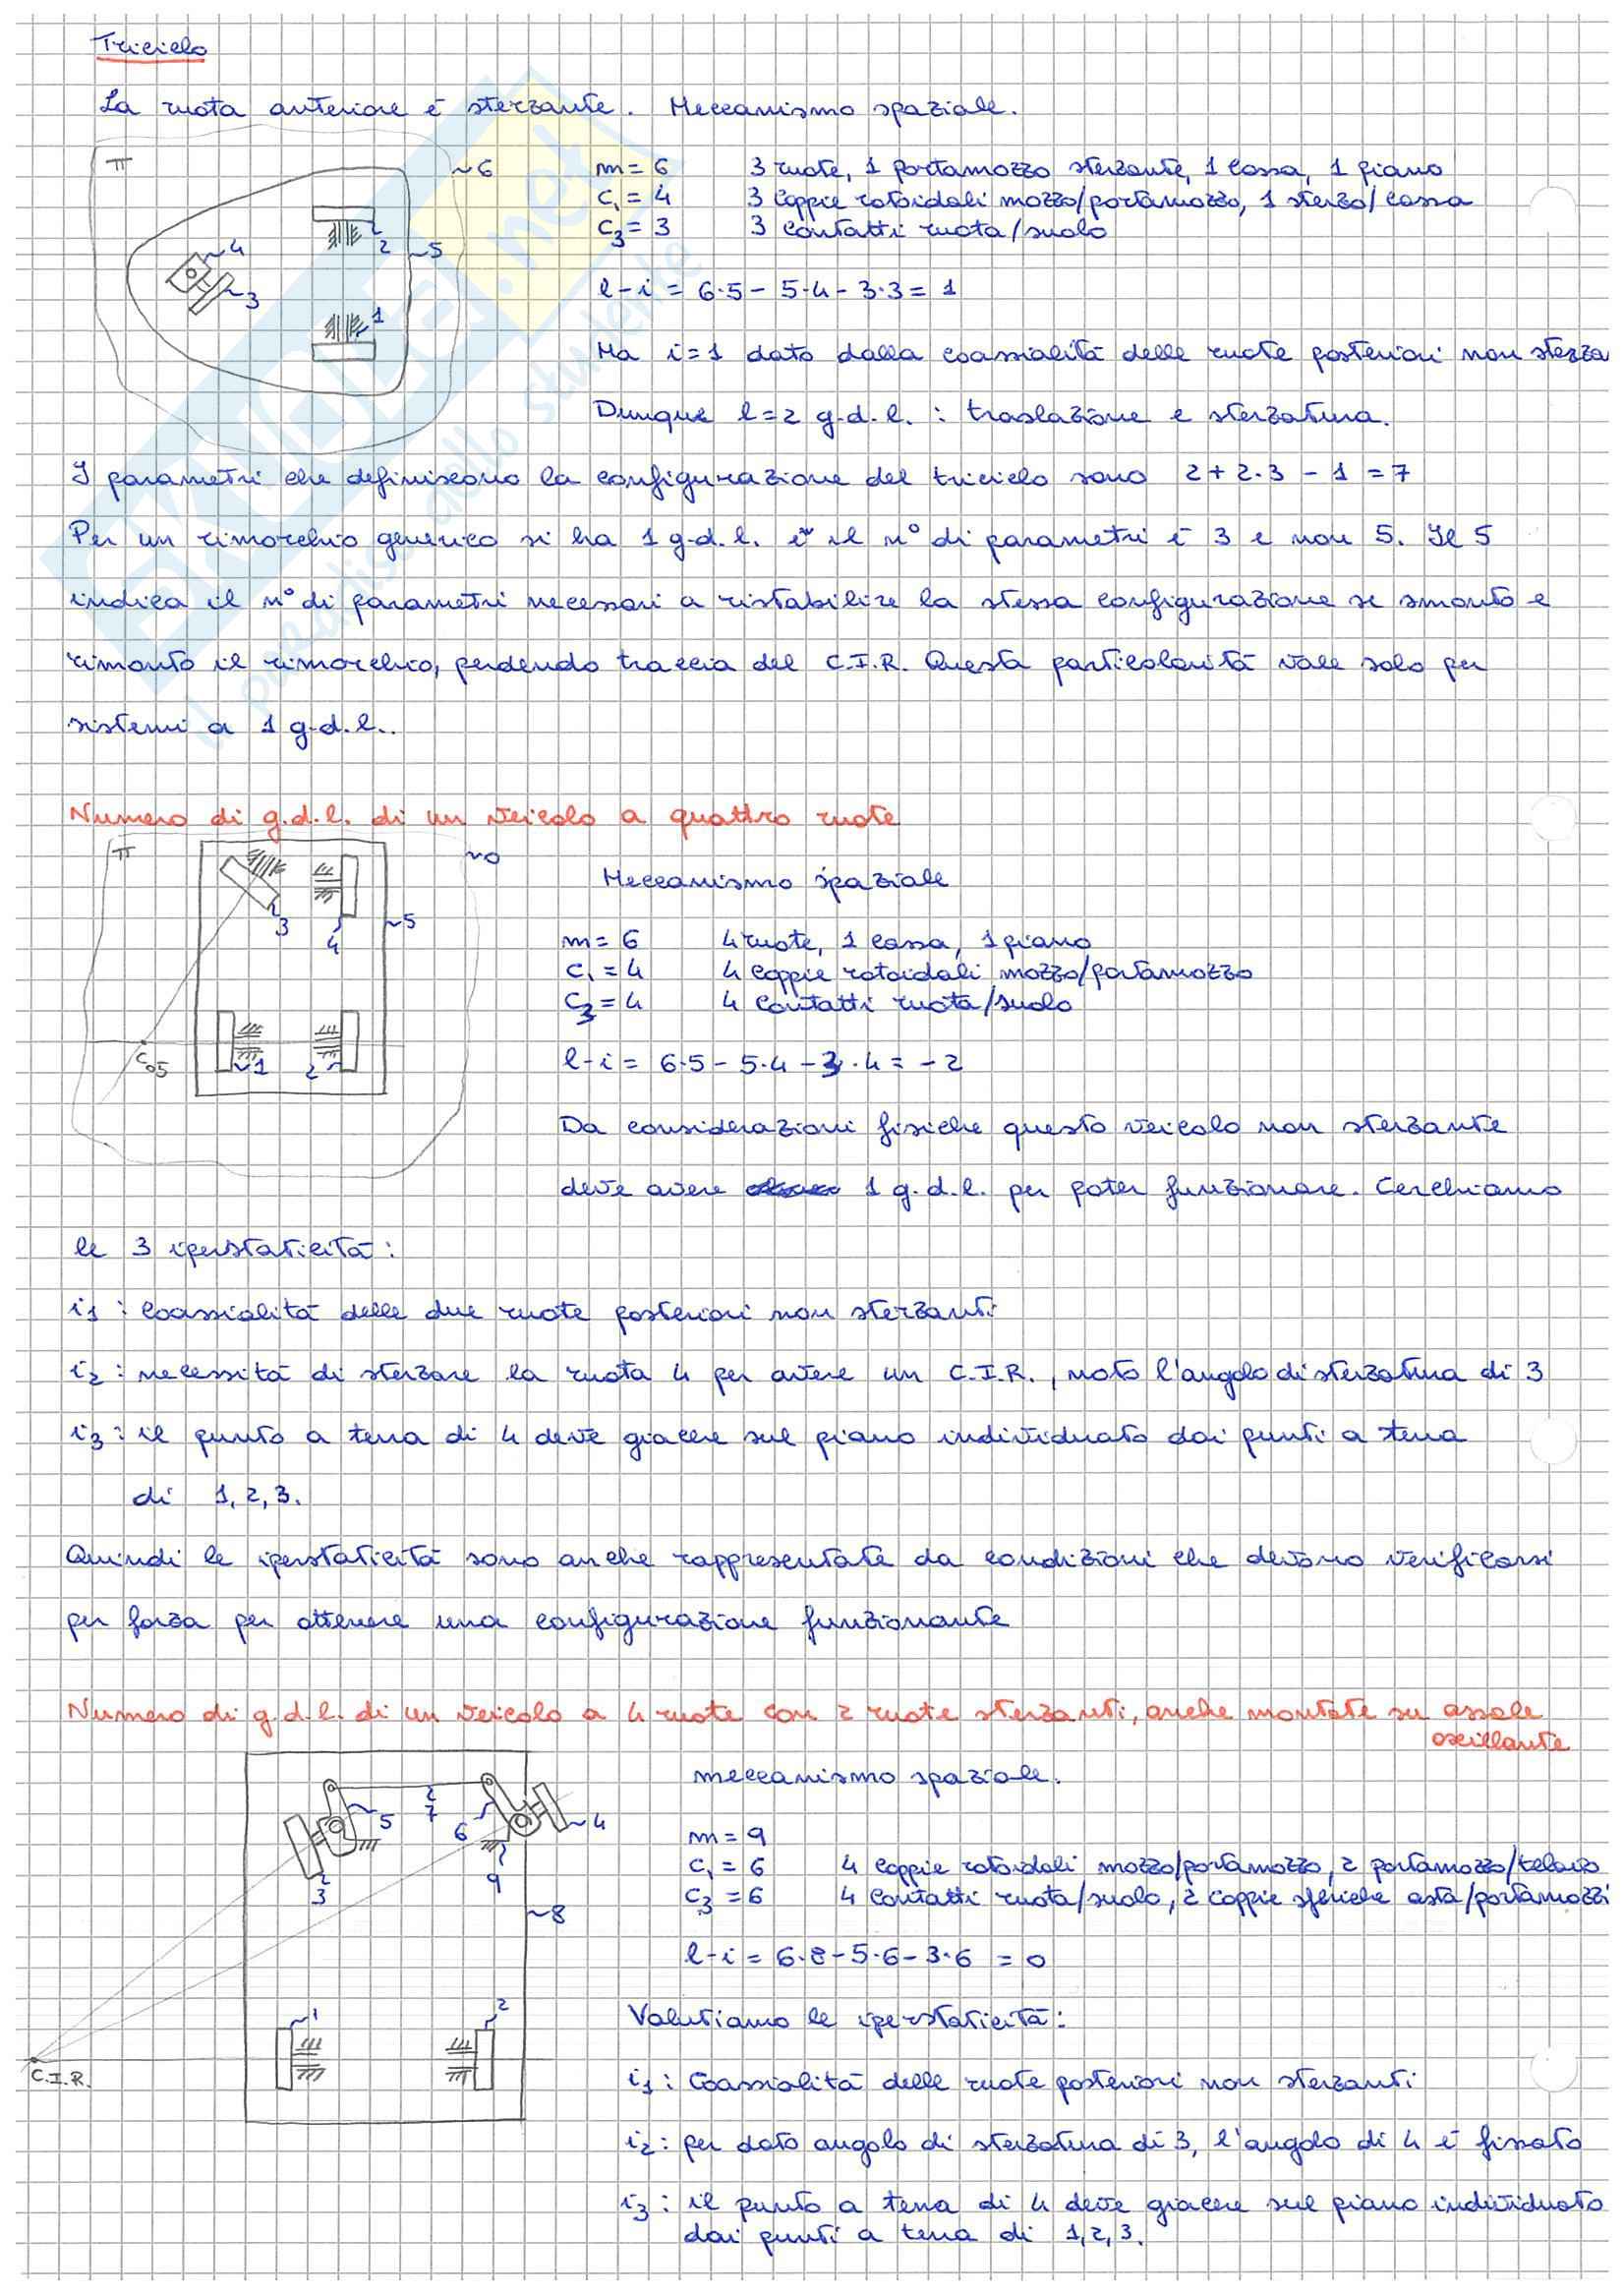 Triciclo
La ruota anteriore è sterzante. Meccanismo spaziale.
π
~6
m = 6 3 ruote, 1 portamozzo sterzante, 1 cassa, 1 piano
c₁ = 4 3 coppie rotoidali mozzo/portamozzo, 1 sterzo/cassa
c₃ = 3 3 contatti ruota/suolo
4
2
5
3
1
l-i = 6·5 - 5·4 - 3·3 = 1
Ma i=1 dato dalla coassialità delle ruote posteriori non sterza
Dunque l=2 g.d.l. : traslazione e sterzatura.
I parametri che definiscono la configurazione del triciclo sono 2+2·3 - 1 = 7
Per un rimorchio generico si ha 1 g.d.l. e il n° di parametri è 3 e non 5. Il 5
indica il n° di parametri necessari a ristabilire la stessa configurazione se smonto e
rimonto il rimorchio, perdendo traccia del C.I.R. Questa particolarità vale solo per
sistemi a 1 g.d.l..
Numero di g.d.l. di un veicolo a quattro ruote
π
~0
Meccanismo spaziale
3
4
~5
m = 6 4 ruote, 1 cassa, 1 piano
c₁ = 4 4 coppie rotoidali mozzo/portamozzo
c₃ = 4 4 contatti ruota/suolo
C₀₅
~1
2
l-i = 6·5 - 5·4 - 3·4 = -2
Da considerazioni fisiche questo veicolo non sterzante
deve avere 1 g.d.l. per poter funzionare. Cerchiamo
le 3 iperstaticità:
i₁ : coassialità delle due ruote posteriori non sterzanti
i₂ : necessità di sterzare la ruota 4 per avere un C.I.R., noto l'angolo di sterzatura di 3
i₃ : il punto a terra di 4 deve giacere sul piano individuato dai punti a terra
di 1, 2, 3.
Quindi le iperstaticità sono anche rappresentate da condizioni che devono verificarsi
per forza per ottenere una configurazione funzionante
Numero di g.d.l. di un veicolo a 4 ruote con 2 ruote sterzanti, anche montate su assale
oscillante
meccanismo spaziale.
5
7
6
~4
3
9
~8
m = 9
c₁ = 6 4 coppie rotoidali mozzo/portamozzo, 2 portamozzo/telaio
c₃ = 6 4 contatti ruota/suolo, 2 coppie sferiche asta/portamozzi
l-i = 6·8 - 5·6 - 3·6 = 0
Valutiamo le iperstaticità:
1
2
C.I.R.
i₁ : Coassialità delle ruote posteriori non sterzanti
i₂ : per dato angolo di sterzatura di 3, l'angolo di 4 è fissato
i₃ : il punto a terra di 4 deve giacere sul piano individuato
dai punti a terra di 1, 2, 3.